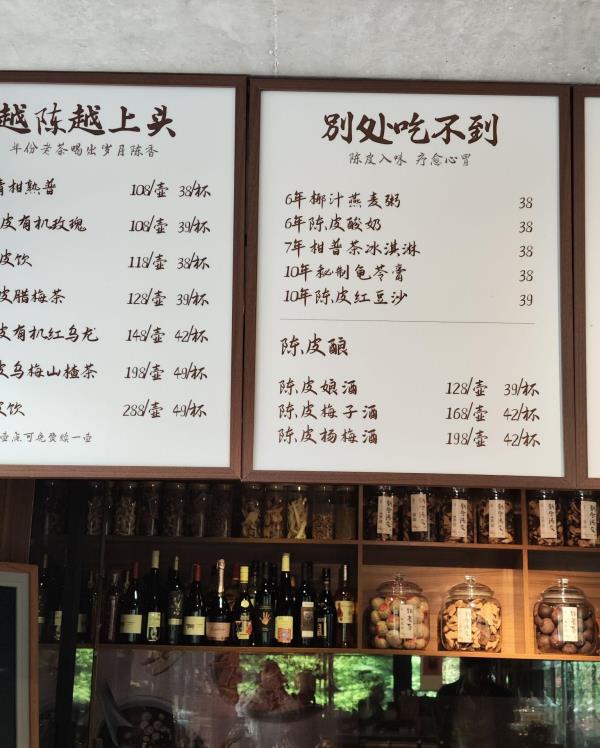 越陈越上头
年份老茶喝出岁月陈香
青柑熟普 108/壶 38/杯
皮有机玫瑰 108/壶 39/杯
皮饮 118/壶 38/杯
皮腊梅茶 128/壶 39/杯
皮有机红乌龙 148/壶 42/杯
皮乌梅山楂茶 198/壶 49/杯
饮 288/壶 49/杯
壶点可免费续一壶
别处吃不到
陈皮入味 疗愈心胃
6年椰汁燕麦粥 38
6年陈皮酸奶 38
7年柑普茶冰淇淋 38
10年秘制龟苓膏 38
10年陈皮红豆沙 39
陈皮酿
陈皮娘酒 128/壶 39/杯
陈皮梅子酒 168/壶 42/杯
陈皮杨梅酒 198/壶 42/杯